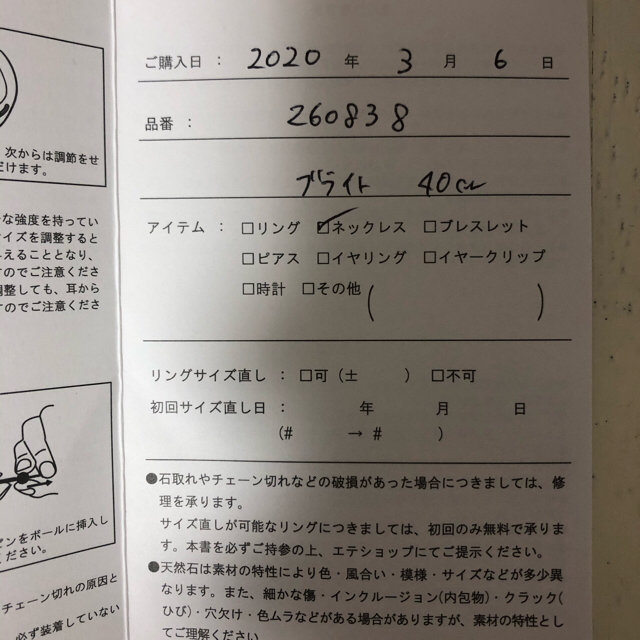 ご購入日 : 2020 年 3 月 6 日
品番 : 260838
ブライト 40cm
アイテム : □リング ☑ネックレス □ブレスレット
□ピアス □イヤリング □イヤークリップ
□時計 □その他( )
リングサイズ直し : □可(± ) □不可
初回サイズ直し日 : 年 月 日
(# → # )
●石取れやチェーン切れなどの破損があった場合につきましては、修
理を承ります。
サイズ直しが可能なリングにつきましては、初回のみ無料で承りま
す。本書を必ずご持参の上、エテショップにてご提示ください。
●天然石は素材の特性により色・風合い・模様・サイズなどが多少異
なります。また、細かな傷・インクルージョン(内包物)・クラック(
ひび)・穴欠け・色ムラなどがある場合がありますが、素材の特性とし
てご理解ください
次からは調節をせ
だけます。
な強度を持ってい
イズを調整すると
えることとなり、
すのでご注意くださ
調整しても、耳から
すのでご注意くださ
ピンをボールに挿入し
ください。
チェーン切れの原因と
必ず装着していない